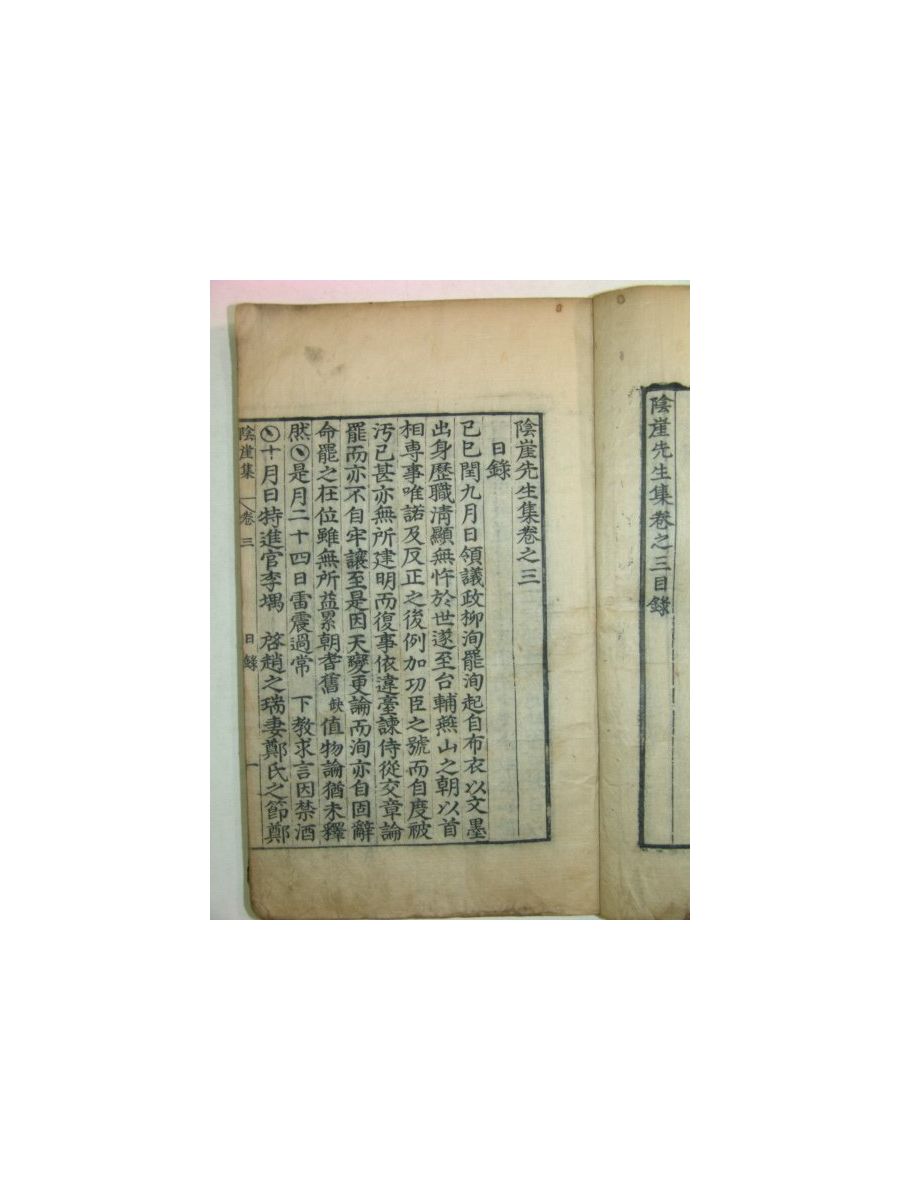 陰崖先生集卷之三目錄
陰崖先生集卷之三
日錄
己巳閏九月日領議政柳洵罷洵起自布衣以文墨
出身歷職淸顯無忤於世遂至台輔燕山之朝以首
相專事唯諾及反正之後例加功臣之號而自度被
汚已甚亦無所建明而復事依違臺諫侍從交章論
罷而亦不自牢讓至是因天變更論而洵亦自固辭
命罷之在位雖無所益累朝耆舊缺值物論猶未釋
然是月二十四日雷震過常 下敎求言因禁酒
十月日特進官李堣 啓趙之瑞妻鄭氏之節鄭
陰崖集 卷三 日錄 一